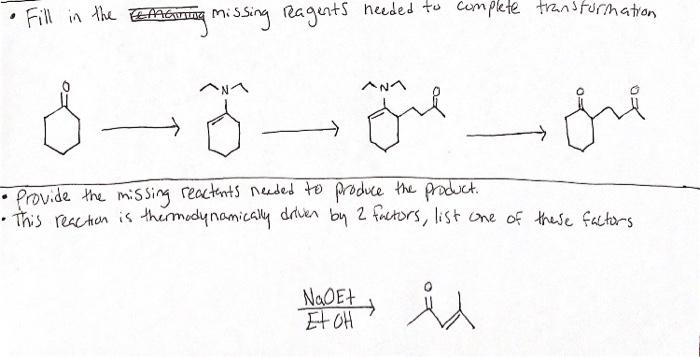 • Fill in the missing reagents needed to complete transformation
O
N
N
O
O
O
• Provide the missing reactants needed to produce the product.
• This reaction is thermodynamically driven by 2 factors, list one of these factors
NaOEt
EtOH
O